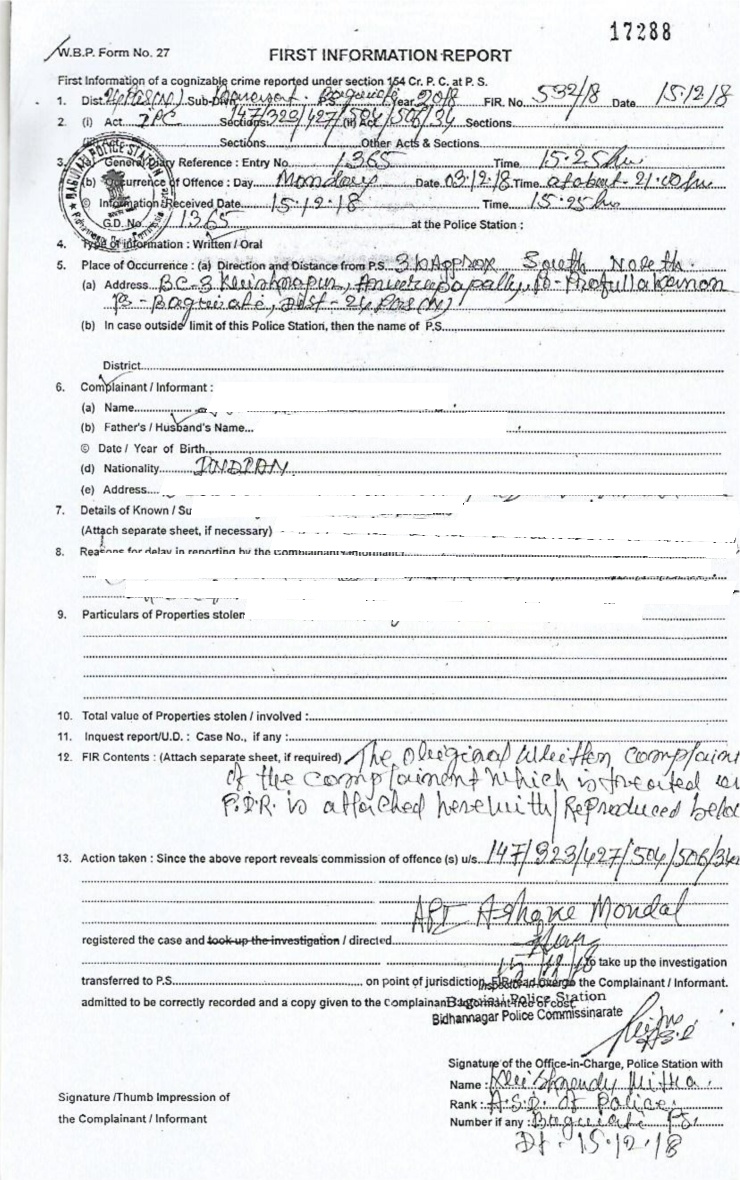 17288
W.B.P. Form No. 27
FIRST INFORMATION REPORT
First Information of a cognizable crime reported under section 154 Cr. P. C. at P. S.
1. Dist. 24 PGS(N) Sub-Divn. P.S. Baguiati Year 2018 FIR. No. 592/18 Date 15.12.18
2. (i) Act IPC Sections 147/323/427/504/506/34 (ii) Act Sections
Sections Other Acts & Sections
3. General Diary Reference : Entry No. 1365 Time 15.25 hrs
(b) Occurrence of Offence : Day Monday Date 03.12.18 Time at about 21.00 hrs
© Information Received Date 15.12.18 Time 15.25 hrs
G.D. No. 1365 at the Police Station :
BAGUIATI POLICE STATION
4. Type of information : Written / Oral
5. Place of Occurrence : (a) Direction and Distance from P.S. 3 k Approx South North
(a) Address BC-3 Krishnapur, PO- Prafullakanan
PS- Baguiati, Dist- 24 PGS (N)
(b) In case outside limit of this Police Station, then the name of P.S.
District
6. Complainant / Informant :
(a) Name
(b) Father's / Husband's Name
© Date / Year of Birth
(d) Nationality INDIAN
(e) Address
7. Details of Known / Su
(Attach separate sheet, if necessary)
8. Reasons for delay in reporting by the complainant/informant
9. Particulars of Properties stolen
10. Total value of Properties stolen / involved :
11. Inquest report/U.D. : Case No., if any :
12. FIR Contents : (Attach separate sheet, if required) The original written complaint
of the complainent which is treated as
F.I.R. is attached herewith/Reproduced below
13. Action taken : Since the above report reveals commission of offence (s) u/s. 147/323/427/504/506/34
Mondal
registered the case and took up the investigation / directed
15/12/18 to take up the investigation
transferred to P.S. on point of jurisdiction, FIR read over to the Complainant / Informant.
admitted to be correctly recorded and a copy given to the Complainant/Informant free of cost.
Inspector-in-Charge
Baguiati Police Station
Bidhannagar Police Commissinarate
Signature of the Office-in-Charge, Police Station with
Name : Mitra
Signature /Thumb Impression of
Rank : A.S.I. of Police
the Complainant / Informant
Number if any : Baguiati PS.
Dt. 15.12.18